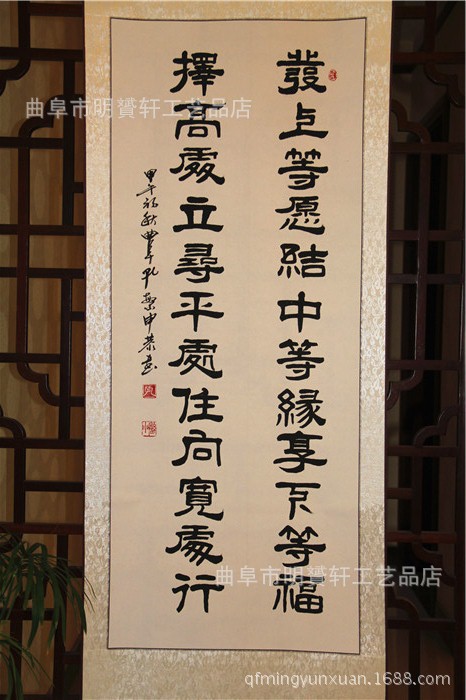 發上等愿結中等緣享下等福
擇高處立尋平處住向寬處行
甲午初秋曲阜孔繁申恭書
曲阜市明贇轩工艺品店
曲阜市明贇轩工艺品店
qfmingyunxuan.1688.com